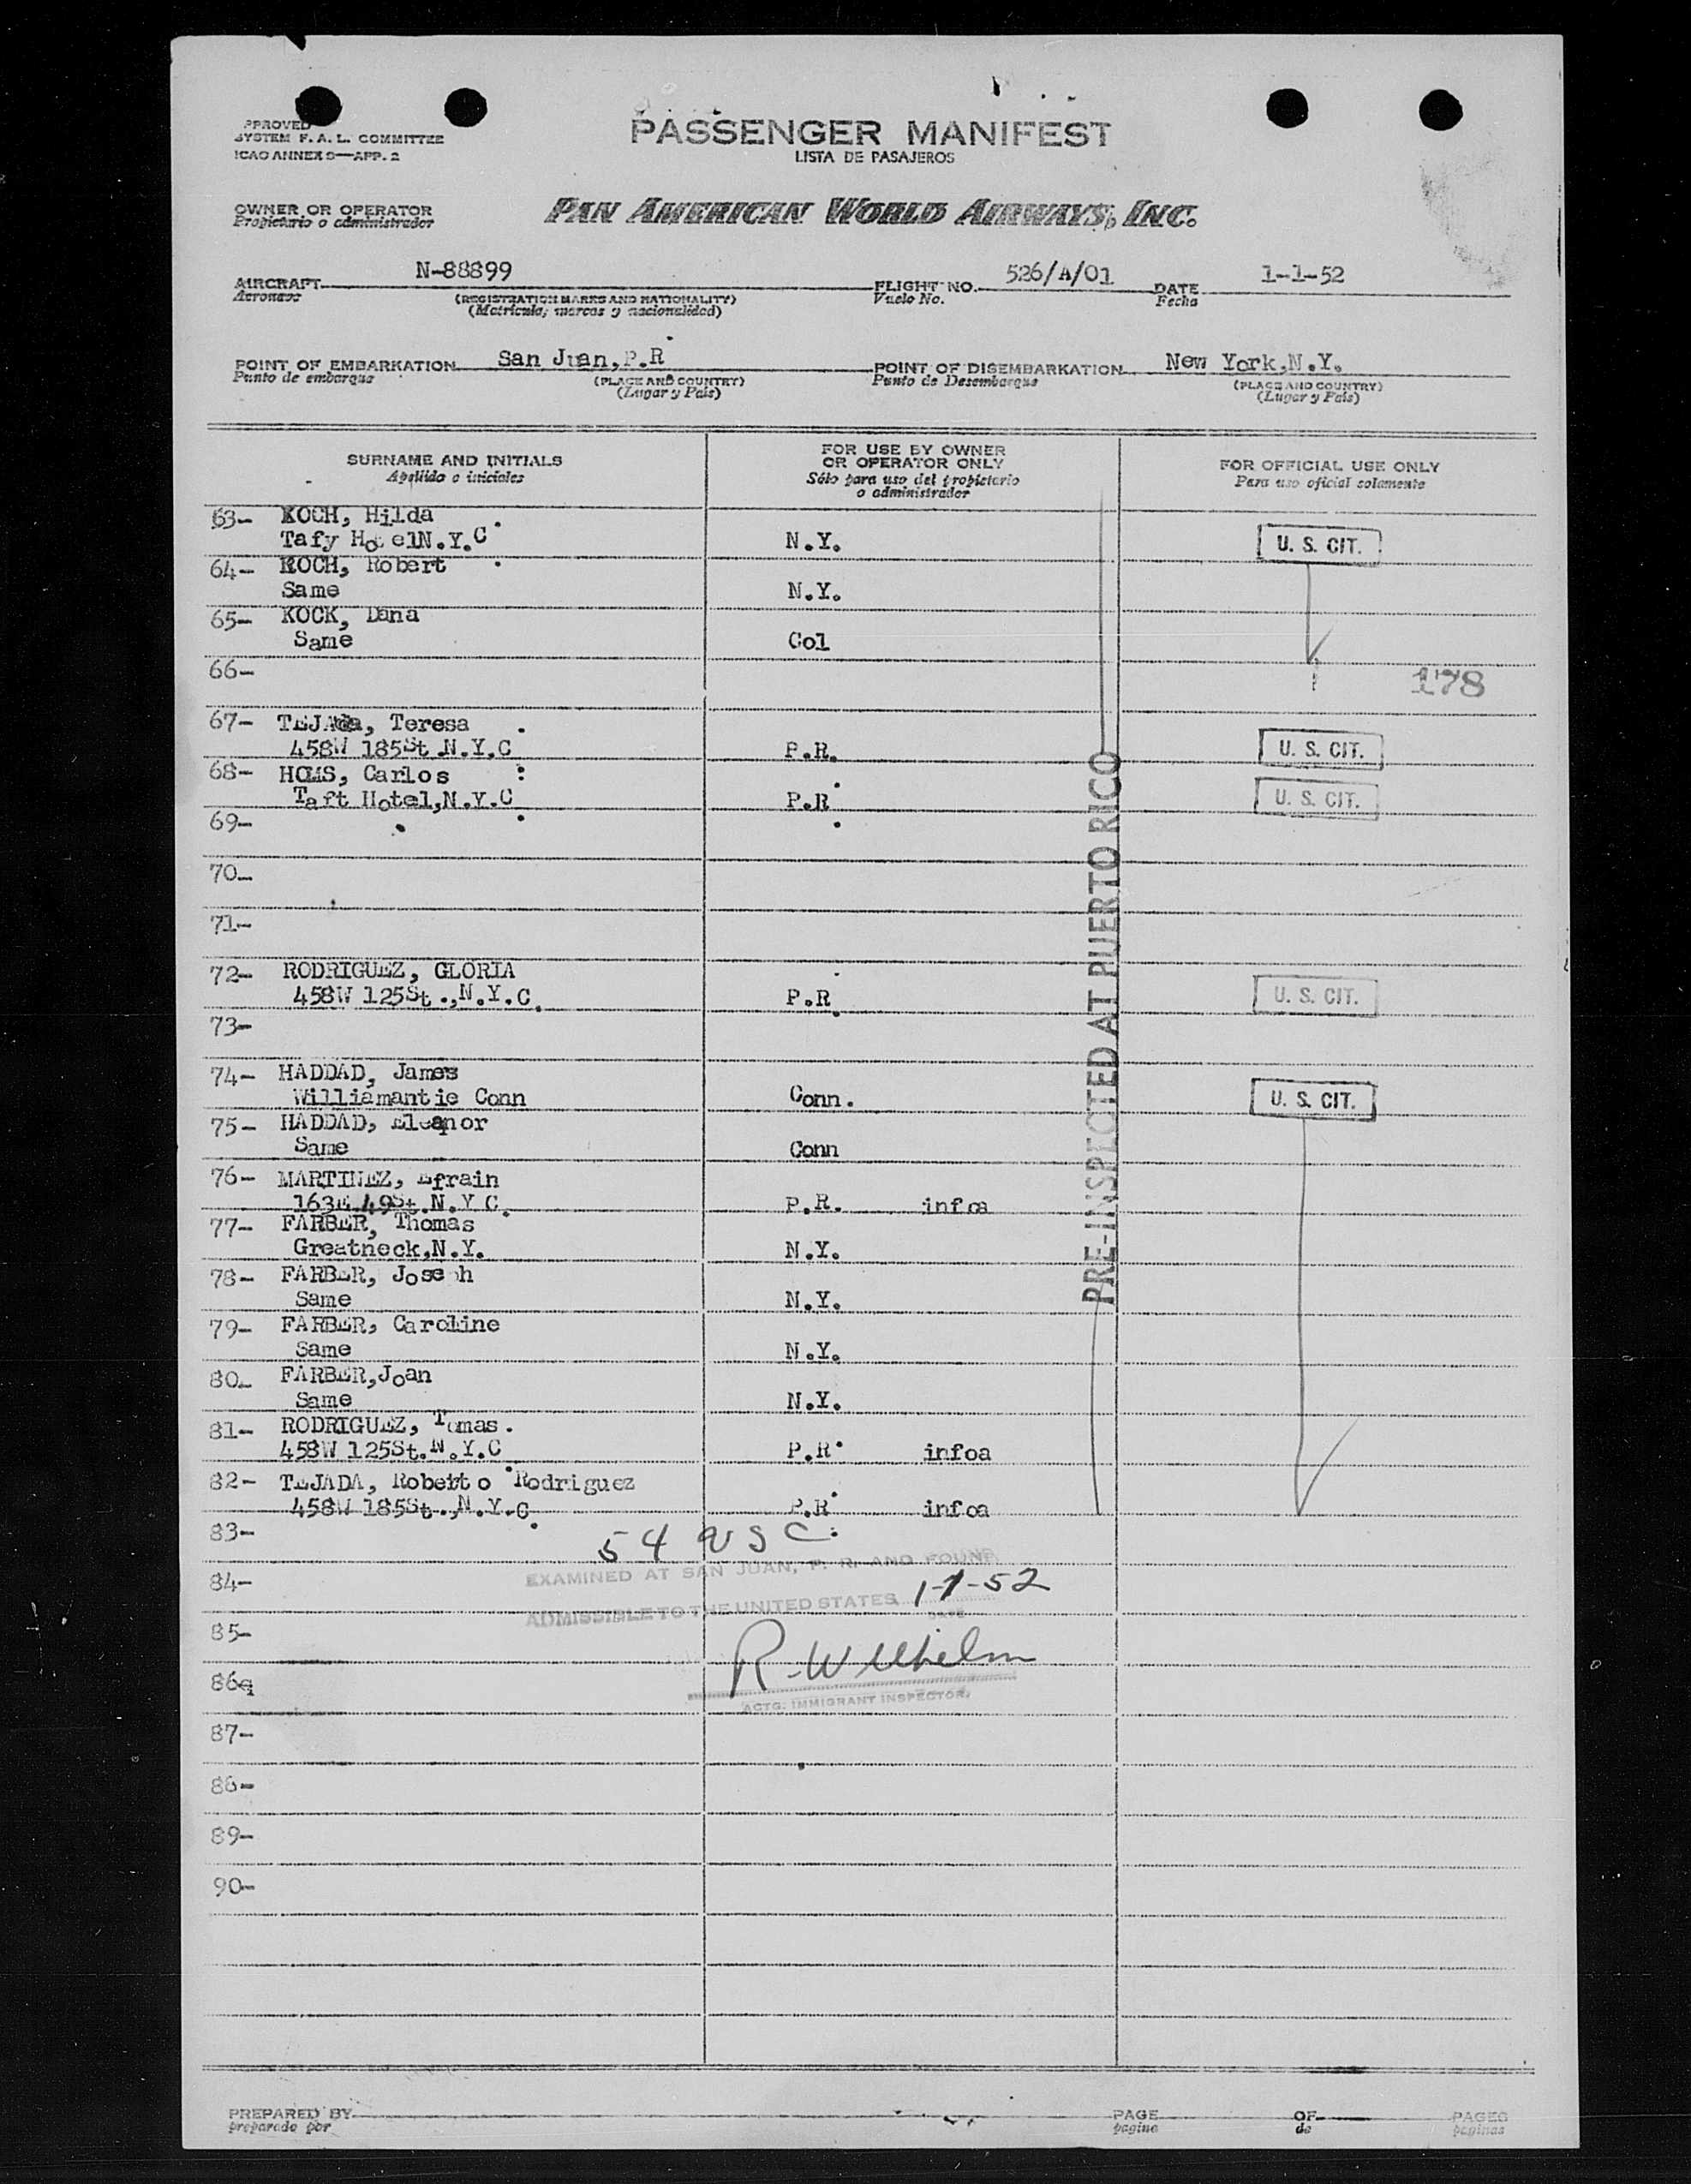 APPROVED
SYSTEM F. A. L. COMMITTEE
ICAO ANNEX 9—APP. 2
PASSENGER MANIFEST
LISTA DE PASAJEROS
OWNER OR OPERATOR
Propietario o administrador
PAN AMERICAN WORLD AIRWAYS, INC.
AIRCRAFT N-88899 FLIGHT NO. 526/A/01 DATE 1-1-52
Aeronave (REGISTRATION MARKS AND NATIONALITY) Vuelo No. Fecha
(Matricula, marcas y nacionalidad)
POINT OF EMBARKATION San Juan,P.R POINT OF DISEMBARKATION New York,N.Y.
Punto de embarque (PLACE AND COUNTRY) Punto de Desembarque (PLACE AND COUNTRY)
(Lugar y Pais) (Lugar y Pais)
SURNAME AND INITIALS
Apellido e iniciales
FOR USE BY OWNER
OR OPERATOR ONLY
Sólo para uso del propietario
o administrador
FOR OFFICIAL USE ONLY
Para uso oficial solamente
63- KOCH, Hilda
Tafy Hotel N.Y.C N.Y. U. S. CIT.
64- KOCH, Robert
Same N.Y.
65- KOCK, Dana
Same Col
66- 178
67- TEJAda, Teresa
458W 185St N.Y.C P.R. U. S. CIT.
68- HOMS, Carlos
Taft Hotel,N.Y.C P.R U. S. CIT.
69-
70-
71-
72- RODRIGUEZ, GLORIA
458W 125St.,N.Y.C. P.R. U. S. CIT.
73-
74- HADDAD, James
Williamantie Conn Conn. U. S. CIT.
75- HADDAD, Eleanor
Same Conn
76- MARTINEZ, Efrain
163E 49St.N.Y C. P.R. infoa
77- FARBER, Thomas
Greatneck,N.Y. N.Y.
78- FARBER, Joseph
Same N.Y.
79- FARBER, Caroline
Same N.Y.
80- FARBER,Joan
Same N.Y.
81- RODRIGUEZ, Tomas.
458W 125St.N.Y.C P.R. infoa
82- TEJADA, Roberto Rodriguez
458W 185St.,N.Y.C. P.R infoa
PRE-INSPECTED AT PUERTO RICO
83- 54 USC
84- EXAMINED AT SAN JUAN, P. R. AND FOUND
ADMISSIBLE TO THE UNITED STATES 1-1-52
DATE
85-
R Wilhelm
86-
ACTG. IMMIGRANT INSPECTOR.
87-
88-
89-
90-
PREPARED BY PAGE OF PAGES
preparado por pagina de paginas